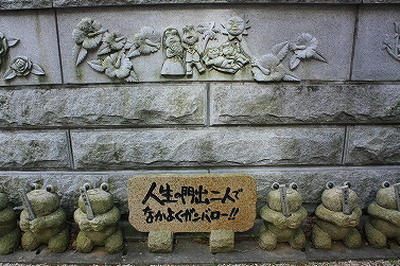 人生の門出二人で
なかよくガンバロー!!